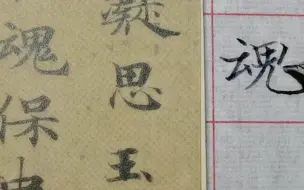 凝思玉
魂保
魂